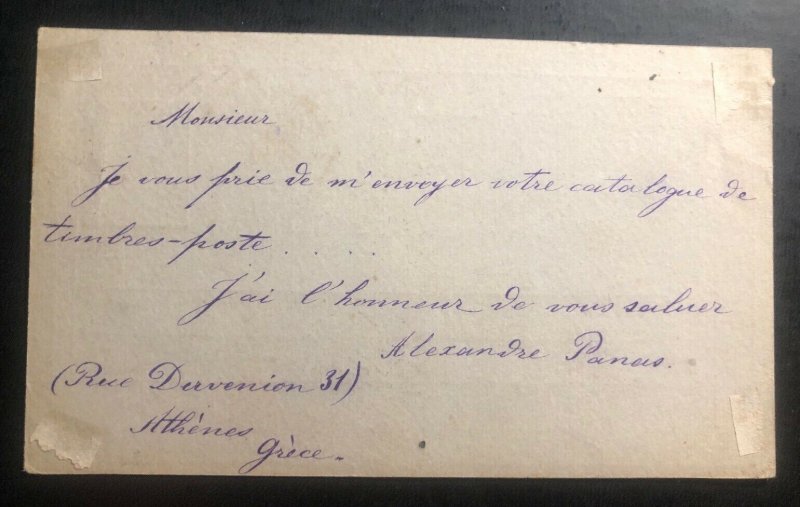 Monsieur
Je vous prie de m'envoyer votre catalogue de
timbres-poste . . . . .
J'ai l'honneur de vous saluer
Alexandre Panas.
(Rue Dervenion 31)
Athènes
Grèce.